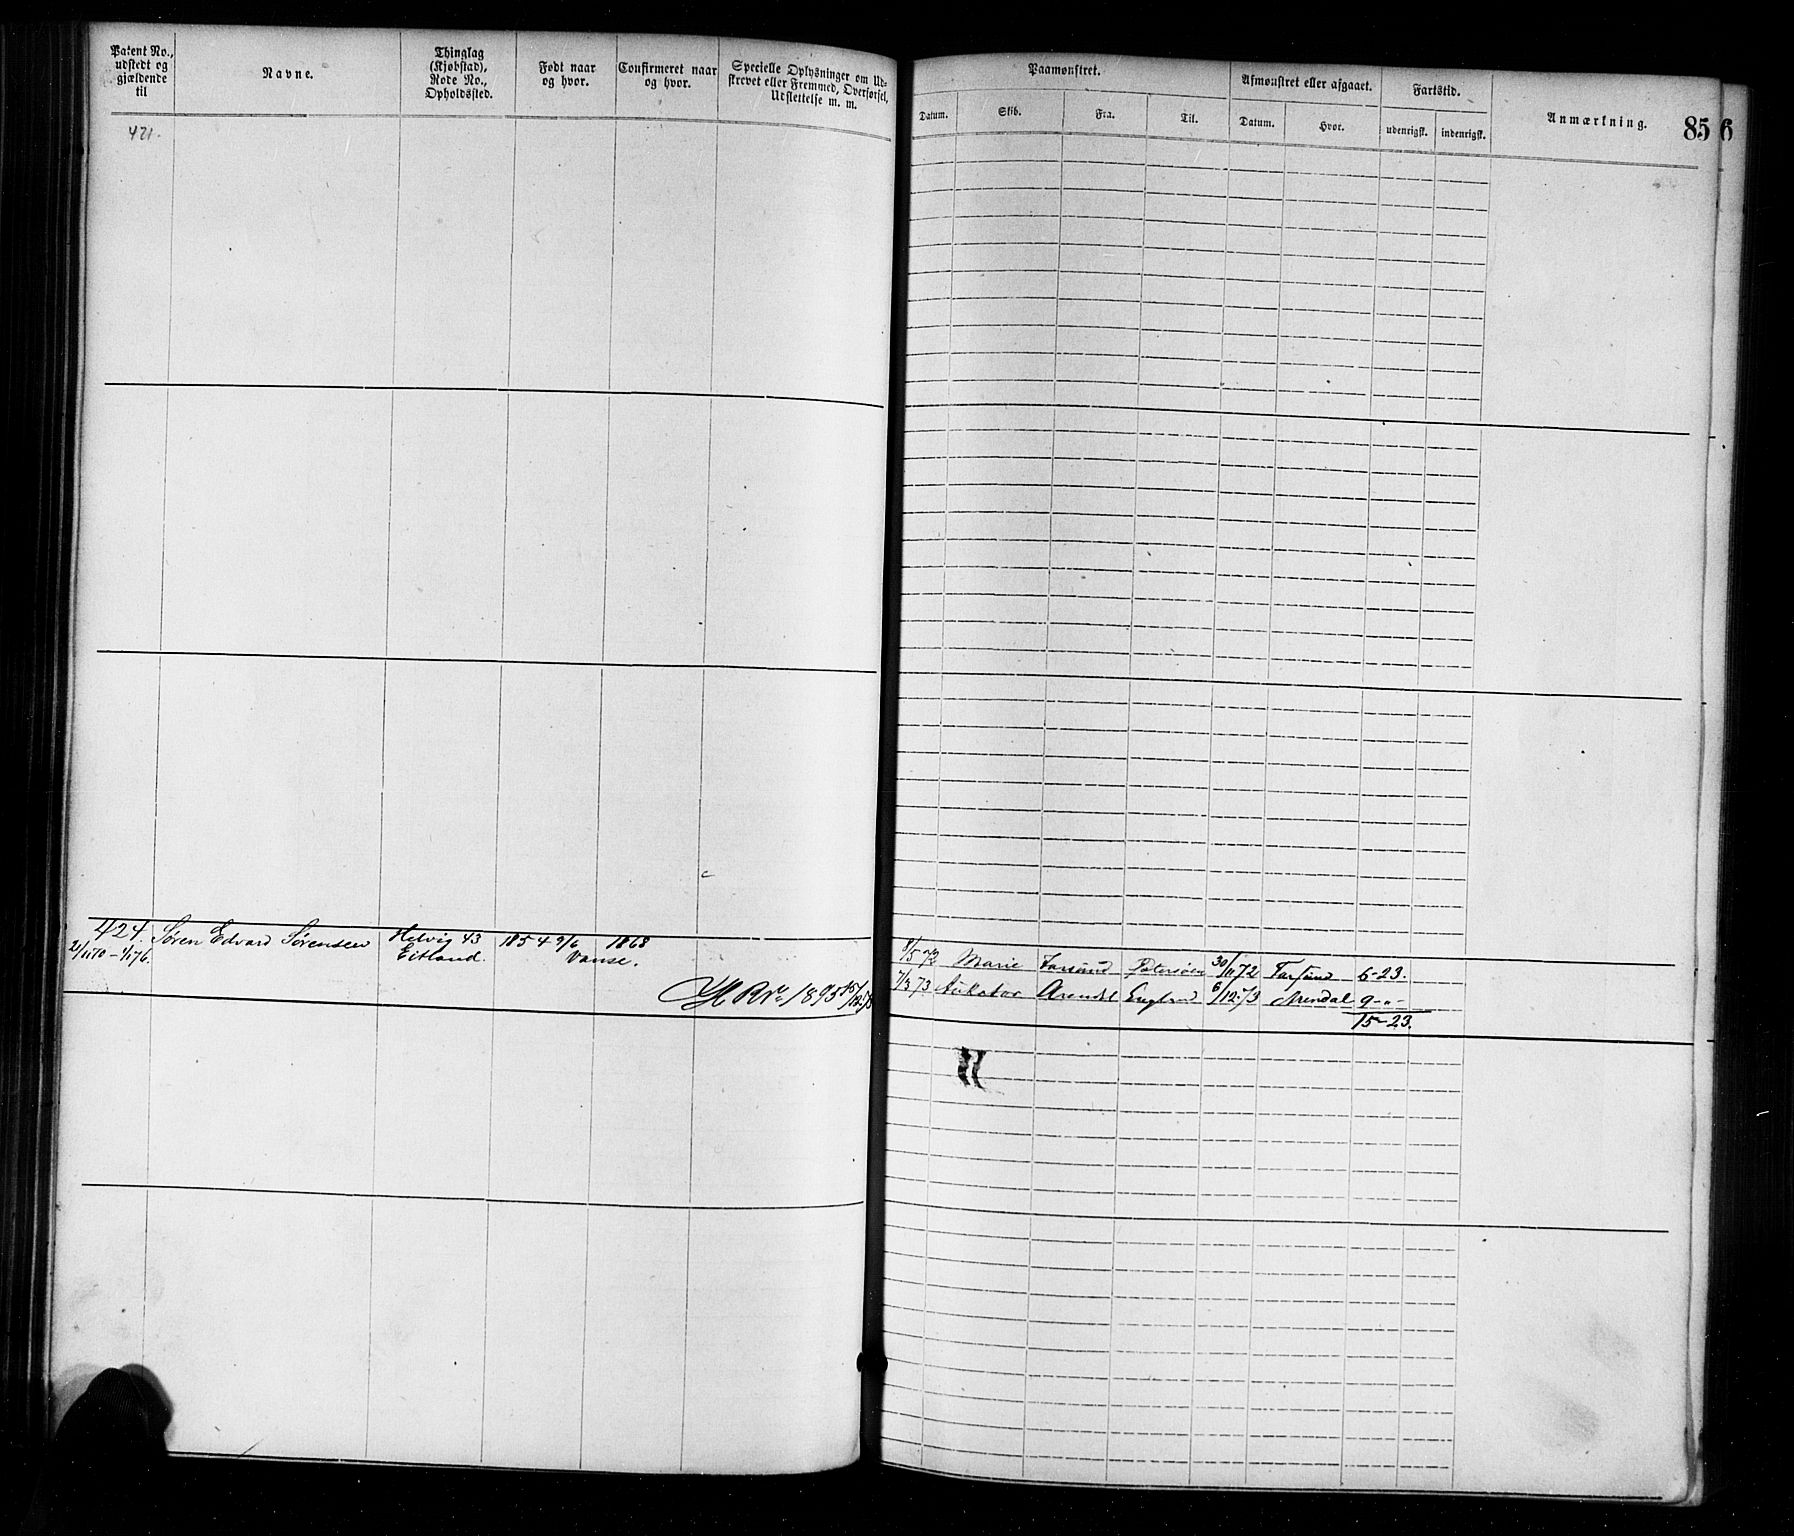 Patent No., udstedt og gjældende til
Navne.
Thinglag (Kjøbstad), Rode No., Opholdssted.
Født naar og hvor.
Confirmeret naar og hvor.
Specielle Oplysninger om Udskrevet eller Fremmed, Overførsel, Udslettelse m. m.
Paamønstret.
Datum.
Skib.
Fra.
Til.
Afmønstret eller afgaaet.
Datum.
Hvor.
Fartstid.
udenrigsk.
indenrigsk.
Anmærkning.
85
6
421.
424. Søren Edvard Sørensen Helvig 43 1854 9/6 1868
21/1170 - 1/176. Eitland. Vanse.
HR No 1895 15/12 73
8/5 72 Marie Farsund Petersøen 30/11 72 Farsund 6-23.
7/3 73 Arendal England 6/12 73 Arendal 9-"-
15-23.